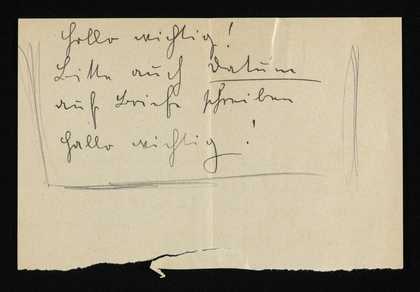 Hallo wichtig!
Bitte auch Datum
auf Briefe schreiben
Hallo wichtig!